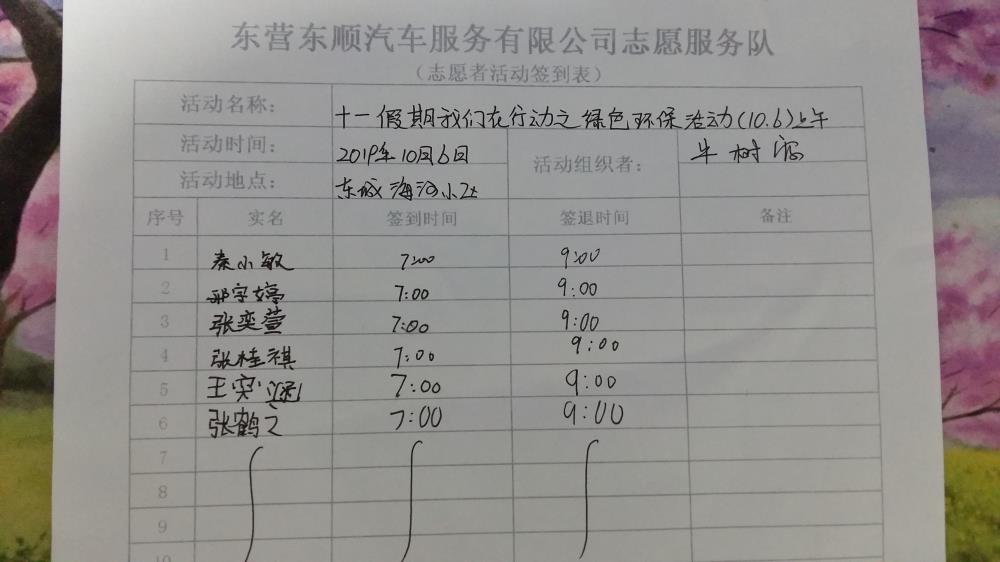 东营东顺汽车服务有限公司志愿服务队
(志愿者活动签到表)
活动名称: 十一假期我们在行动之绿色环保活动(10.6)上午
活动时间: 2019年10月6日 活动组织者: 牛树
活动地点: 东城海河小区
序号 实名 签到时间 签退时间 备注
1 秦小敏 7:00 9:00
2 邢宇婷 7:00 9:00
3 张奕萱 7:00 9:00
4 张桂祺 7:00 9:00
5 王奕涵 7:00 9:00
6 张鹤之 7:00 9:00
7
8
9
10